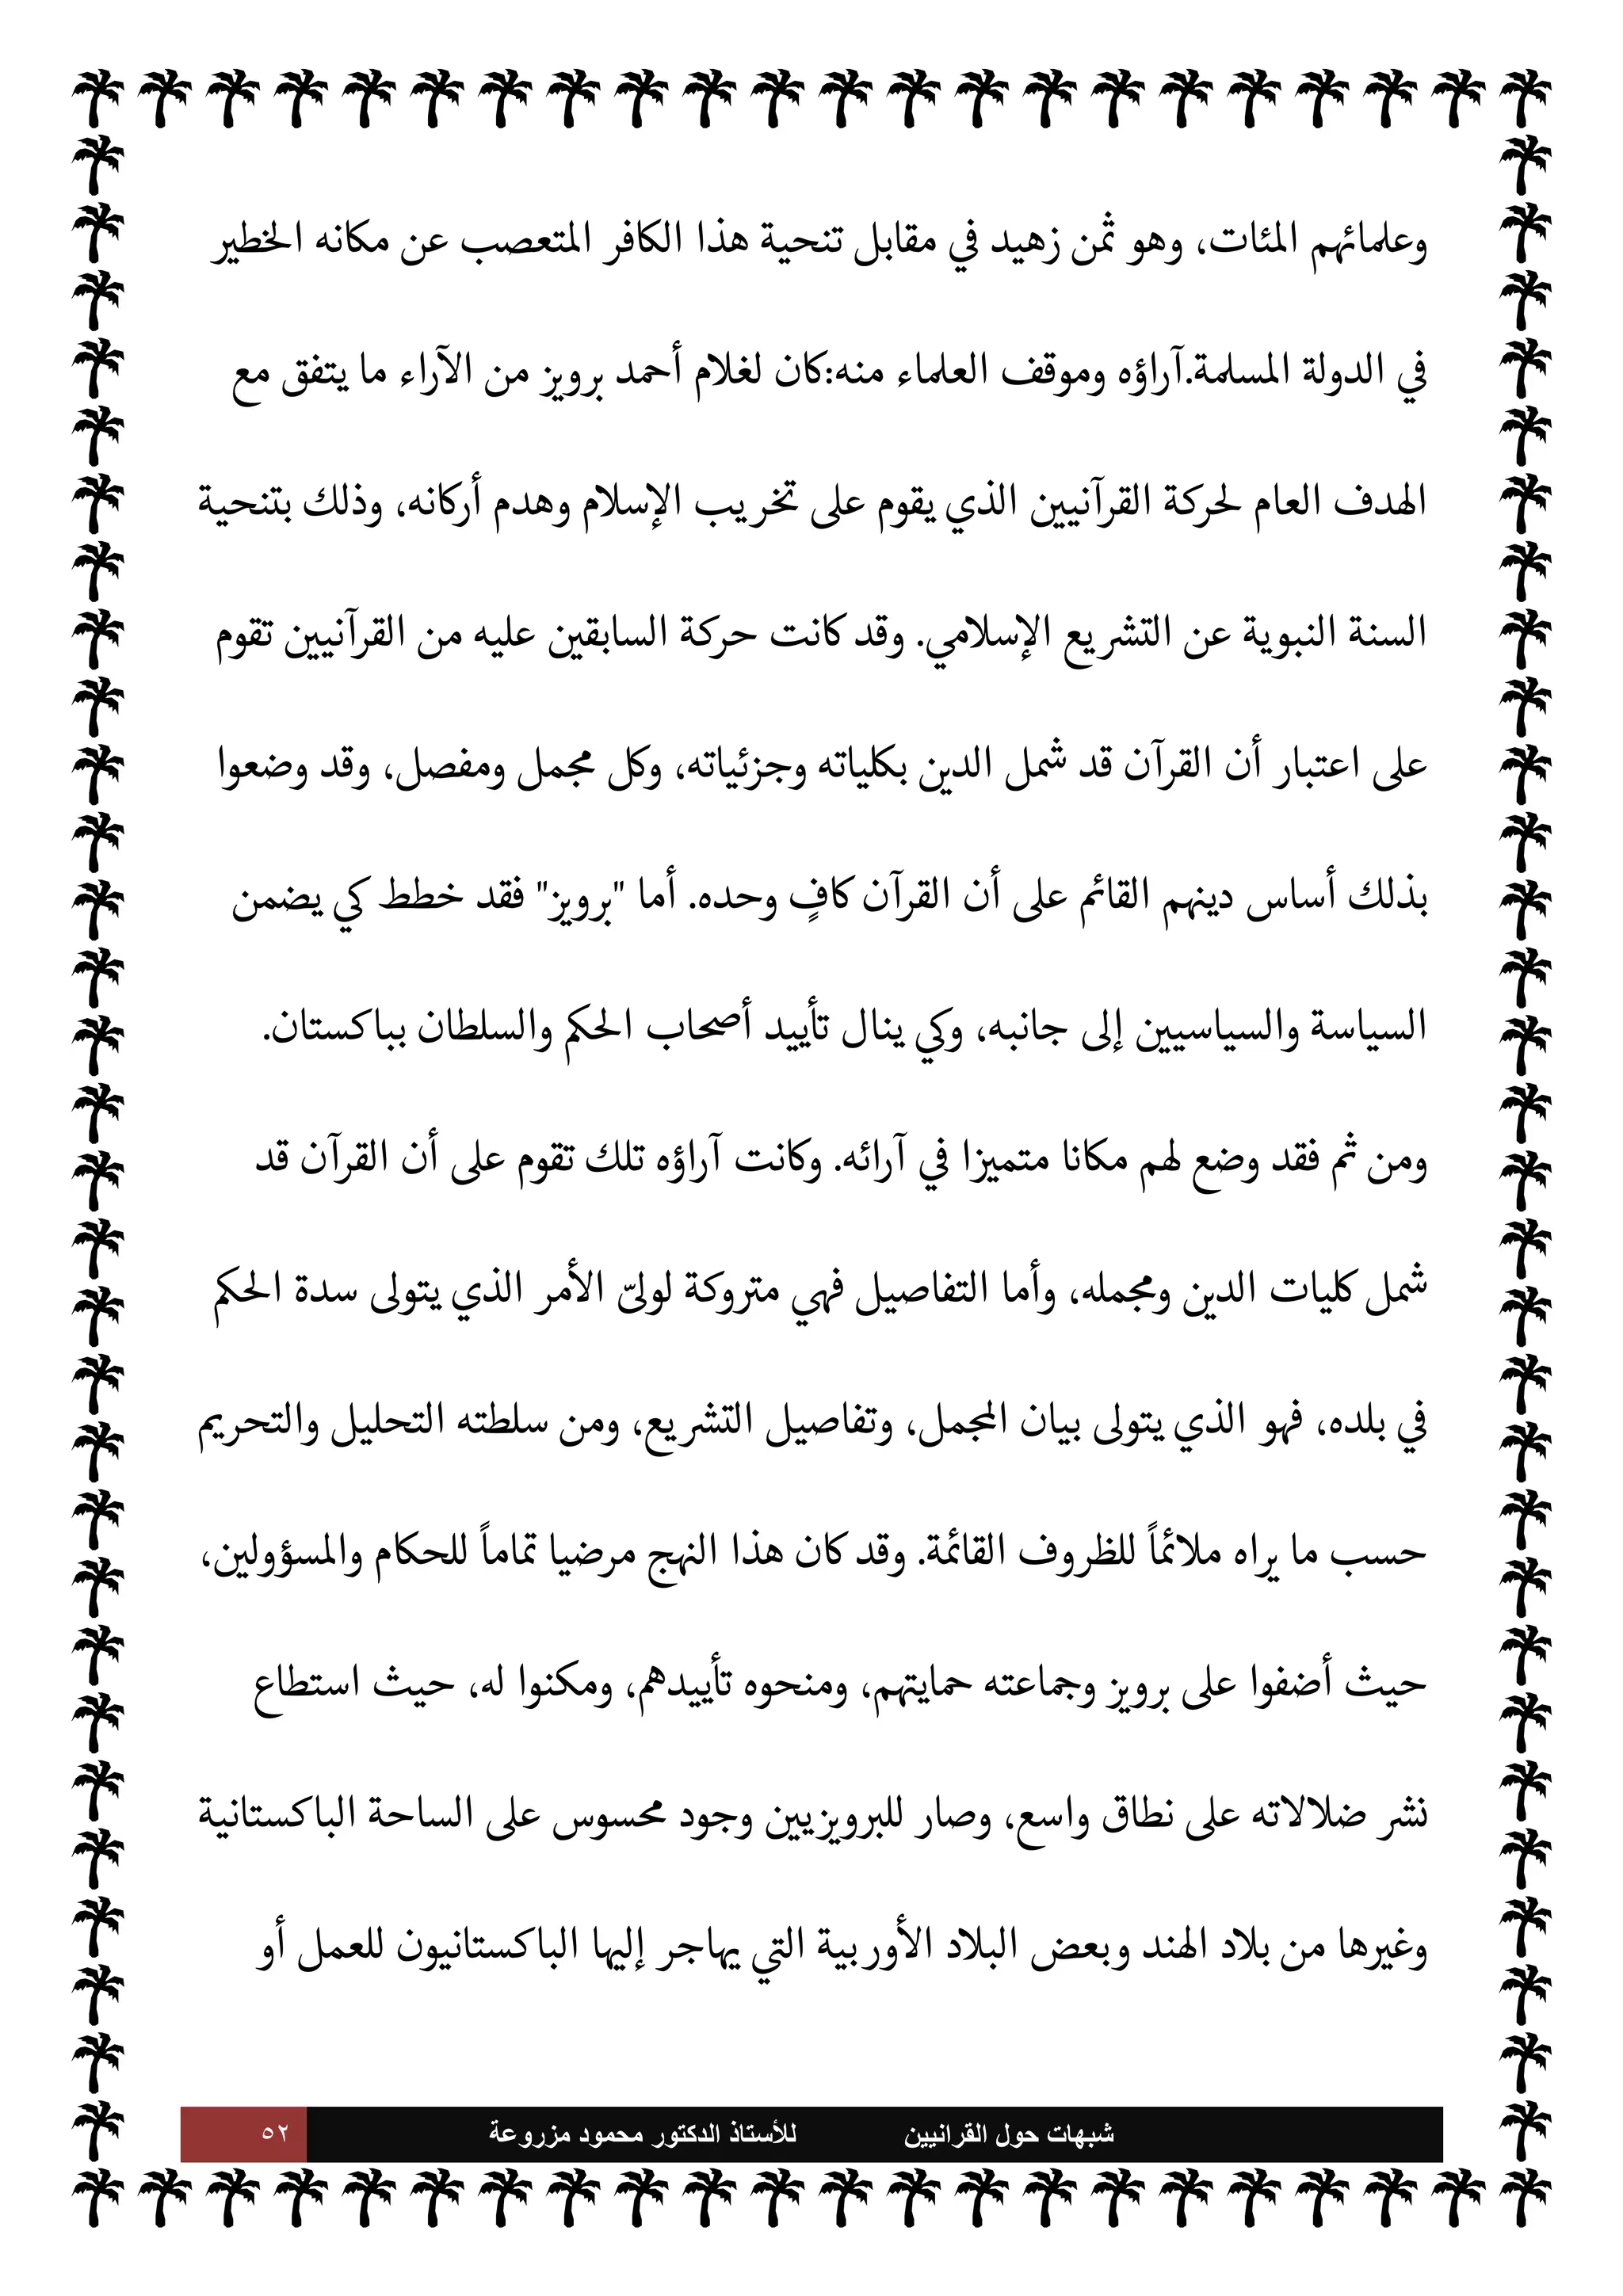 وعلمائهم المئات، وهو ثمن زهيد في مقابل تنحية هذا الكافر المتعصب عن مكانه الخطير
في الدولة المسلمة.آراؤه وموقف العلماء منه:كان لغلام أحمد برويز من الآراء ما يتفق مع
الهدف العام لحركة القرآنيين الذي يقوم على تخريب الإسلام وهدم أركانه، وذلك بتنحية
السنة النبوية عن التشريع الإسلامي. وقد كانت حركة السابقين عليه من القرآنيين تقوم
على اعتبار أن القرآن قد شمل الدين بكلياته وجزئياته، وكل مجمل ومفصل، وقد وضعوا
بذلك أساس دينهم القائم على أن القرآن كافٍ وحده. أما "برويز" فقد خطط كي يضمن
السياسة والسياسيين إلى جانبه، وكي ينال تأييد أصحاب الحكم والسلطان بباكستان.
ومن ثم فقد وضع لهم مكانا متميزا في آرائه. وكانت آراؤه تلك تقوم على أن القرآن قد
شمل كليات الدين ومجمله، وأما التفاصيل فهي متروكة لولىّ الأمر الذي يتولى سدة الحكم
في بلده، فهو الذي يتولى بيان المجمل، وتفاصيل التشريع، ومن سلطته التحليل والتحريم
حسب ما يراه ملائماً للظروف القائمة. وقد كان هذا النهج مرضيا تماماً للحكام والمسؤولين،
حيث أضفوا على برويز وجماعته حمايتهم، ومنحوه تأييدهم، ومكنوا له، حيث استطاع
نشر ضلالاته على نطاق واسع، وصار للبرويزيين وجود محسوس على الساحة الباكستانية
وغيرها من بلاد الهند وبعض البلاد الأوربية التي يهاجر إليها الباكستانيون للعمل أو
شبهات حول القرانيين للأستاذ الدكتور محمود مزروعة ٥٢